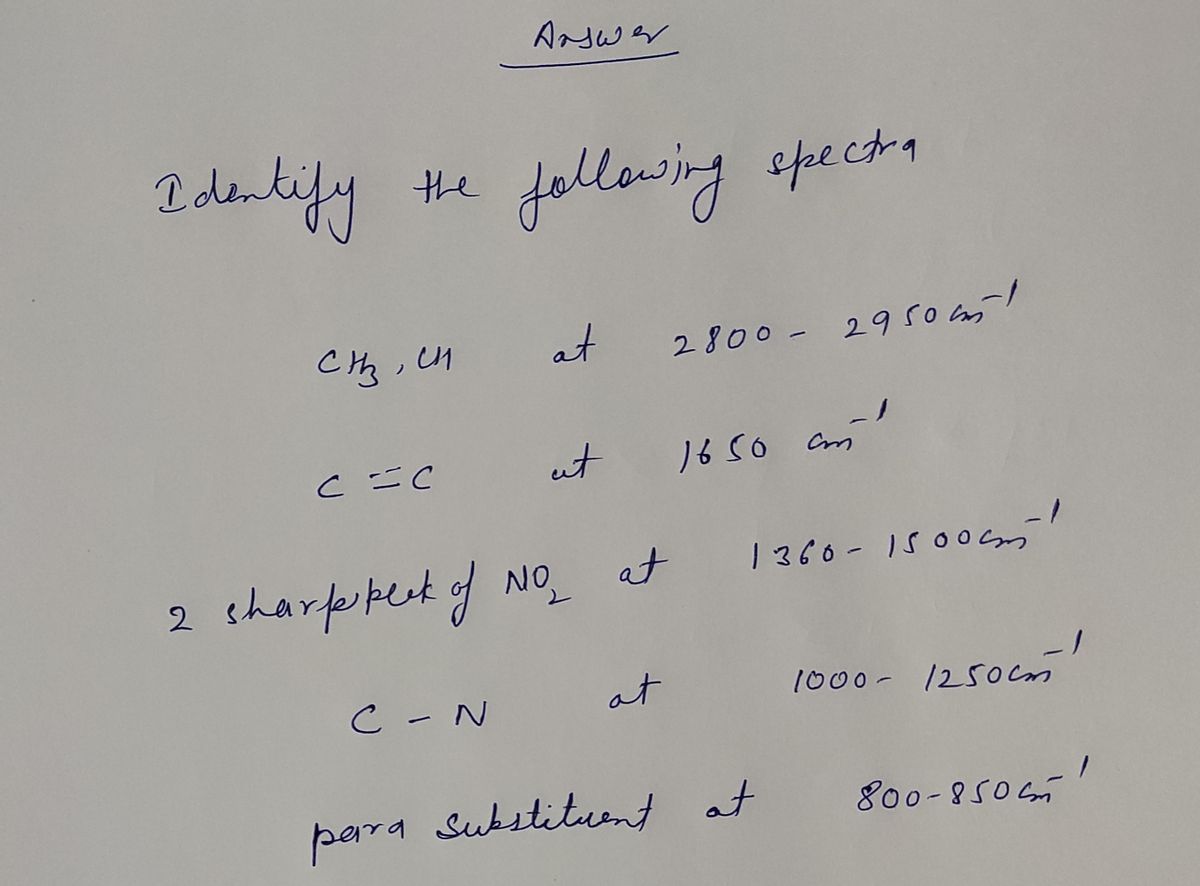 Answer
Identify the following spectra
CH₃, CH at 2800 - 2950 cm⁻¹
C = C at 1650 cm⁻¹
2 sharp peak of NO₂ at 1360 - 1500 cm⁻¹
C - N at 1000 - 1250 cm⁻¹
para substituent at 800-850 cm⁻¹